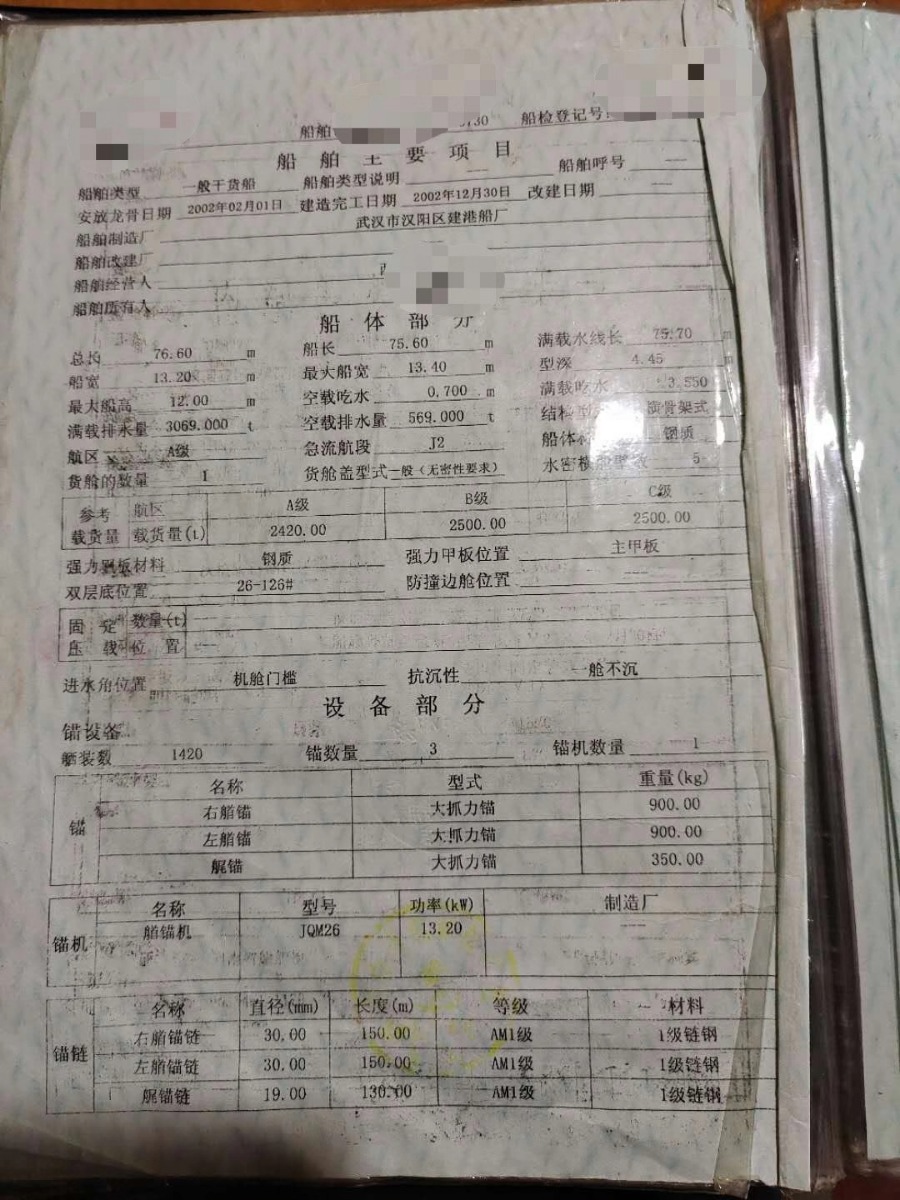 船舶 730 船检登记号:
船舶主要项目
船舶类型 一般干货船 船舶类型说明 --- 船舶呼号 ---
安放龙骨日期 2002年02月01日 建造完工日期 2002年12月30日 改建日期 ---
船舶制造厂 武汉市汉阳区建港船厂
船舶改建厂
船舶经营人
船舶所有人
船体部分
总长 76.60 m 船长 75.60 m 满载水线长 75.70 m
船宽 13.20 m 最大船宽 13.40 m 型深 4.45 m
最大船高 12.00 m 空载吃水 0.700 m 满载吃水 3.550
满载排水量 3069.000 t 空载排水量 569.000 t 结构型 骨架式
航区 A级 急流航段 J2 船体 钢质
货舱的数量 1 货舱盖型式 一般(无密性要求) 水密横 数 5
参考 航区 A级 B级 C级
载货量 载货量(t) 2420.00 2500.00 2500.00
强力甲板材料 钢质 强力甲板位置 主甲板
双层底位置 26-126# 防撞边舱位置 ---
固定 数量(t)
压载 位置
进水角位置 机舱门槛 抗沉性 一舱不沉
设备部分
锚设备
舾装数 1420 锚数量 3 锚机数量 1
锚
名称 型式 重量(kg)
右艏锚 大抓力锚 900.00
左艏锚 大抓力锚 900.00
艉锚 大抓力锚 350.00
锚机
名称 型号 功率(kW) 制造厂
艏锚机 JQM26 13.20 ---
锚链
名称 直径(mm) 长度(m) 等级 材料
右艏锚链 30.00 150.00 AM1级 1级链钢
左艏锚链 30.00 150.00 AM1级 1级链钢
艉锚链 19.00 130.00 AM1级 1级链钢